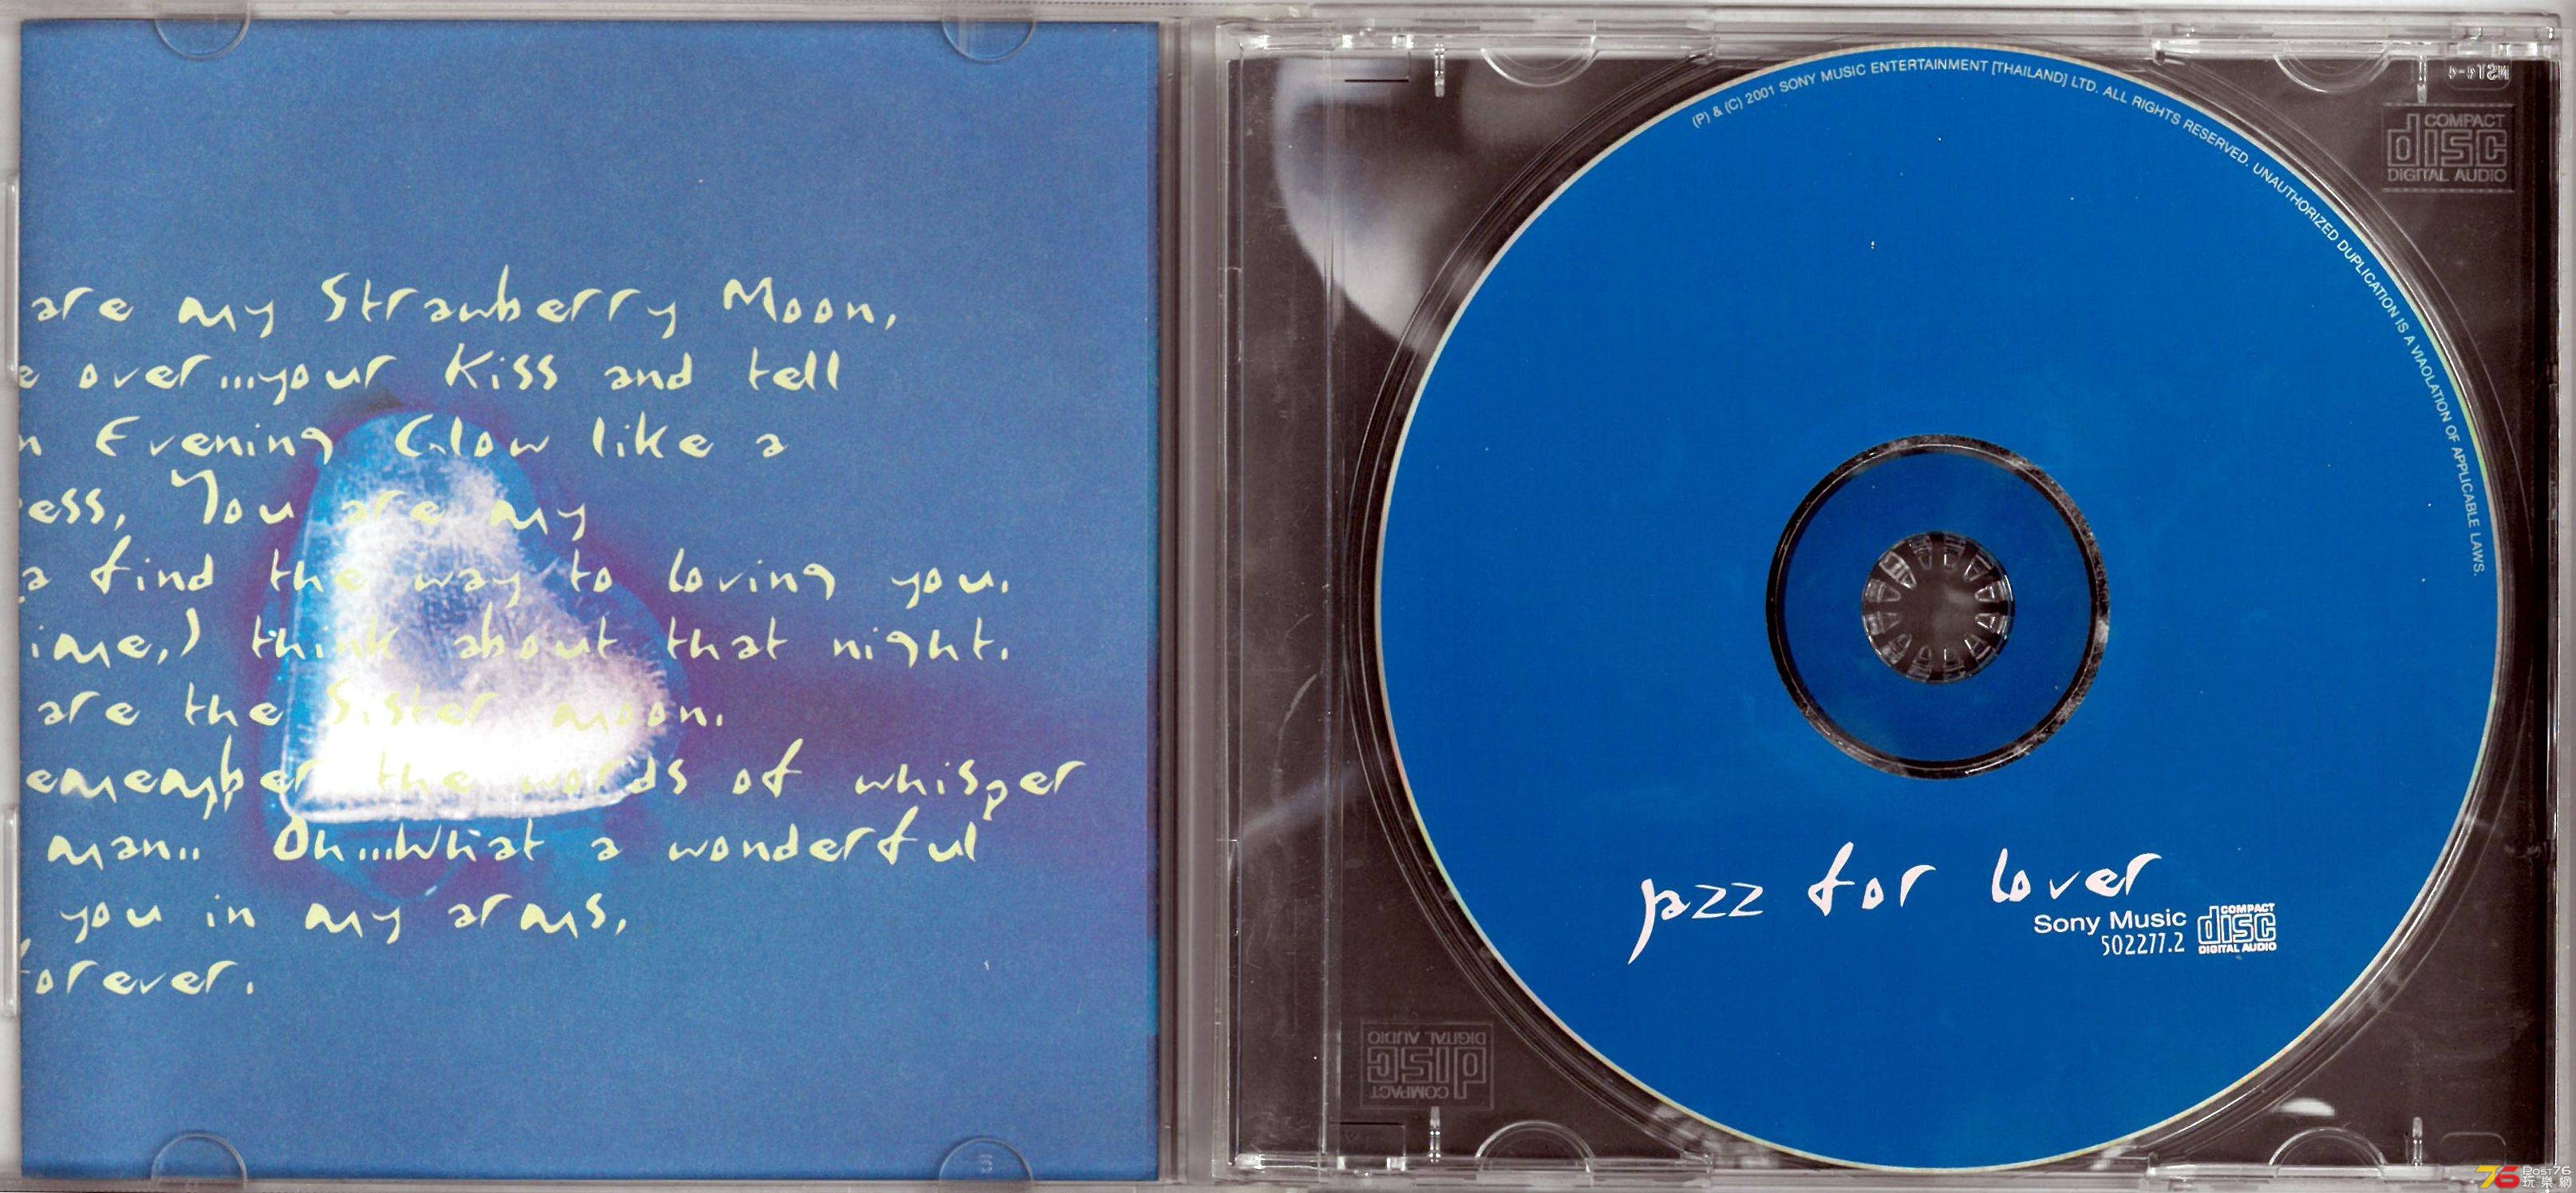 are my Strawberry Moon,
over...your Kiss and tell
Evening Glow like a
ess, You are my
a find the way to loving you.
ime,I think about that night.
are the Sister moon.
emember the words of whisper
man.. Oh...What a wonderful
you in my arms,
orever.
(P) & (C) 2001 SONY MUSIC ENTERTAINMENT [THAILAND] LTD. ALL RIGHTS RESERVED. UNAUTHORIZED DUPLICATION IS A VIAOLATION OF APPLICABLE LAWS.
COMPACT
disc
DIGITAL AUDIO
jazz for lover
Sony Music
502277.2
COMPACT
disc
DIGITAL AUDIO
COMPACT
disc
DIGITAL AUDIO
76 Post76
玩樂網